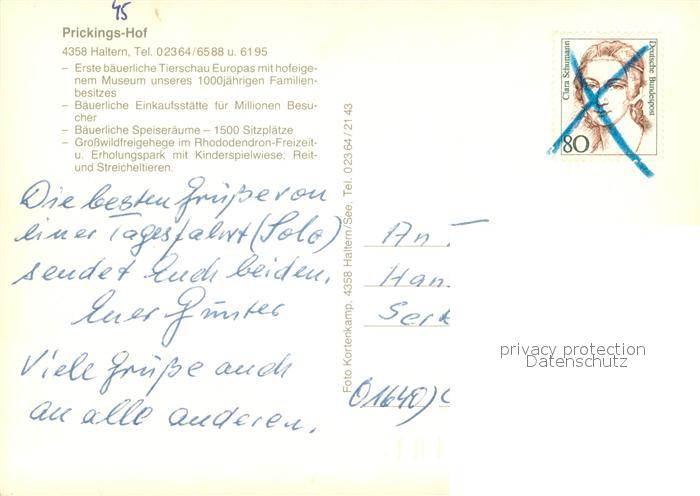 45
Prickings-Hof
4358 Haltern, Tel. 02364/6588 u. 6195
– Erste bäuerliche Tierschau Europas mit hofeige-
nem Museum unseres 1000jährigen Familien-
besitzes
– Bäuerliche Einkaufsstätte für Millionen Besu-
cher
– Bäuerliche Speiseräume – 1500 Sitzplätze
– Großwildfreigehege im Rhododendron-Freizeit-
u. Erholungspark mit Kinderspielwiese, Reit-
und Streicheltieren.
Die besten Grüße von
einer Tagesfahrt (Solo)
sendet Euch beiden,
Euer Günter
Viele Grüße auch
an alle anderen.
Foto Kortenkamp, 4358 Haltern/See, Tel. 02364/2143
Clara Schumann
Deutsche Bundespost
80
An
Han
Serk
O1640)
privacy protection
Datenschutz